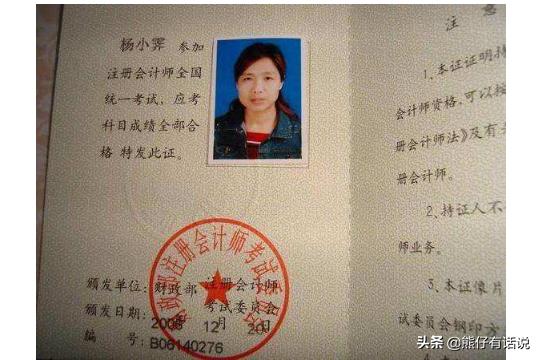 杨小霁 参加
注册会计师全国
统一考试，应考
科目成绩全部合
格 特发此证。
颁发单位：财政部 注册会计师
考试委员会
颁发日期：12 月 20 日
编 号：B06140276
政部注册会计师考试委
注 意
1、本证证明持
会计师资格，可以按
册会计师法》及有
册会计师。
2、持证人不
师业务。
3、本证像片
试委员会钢印方
头条 @熊仔有话说